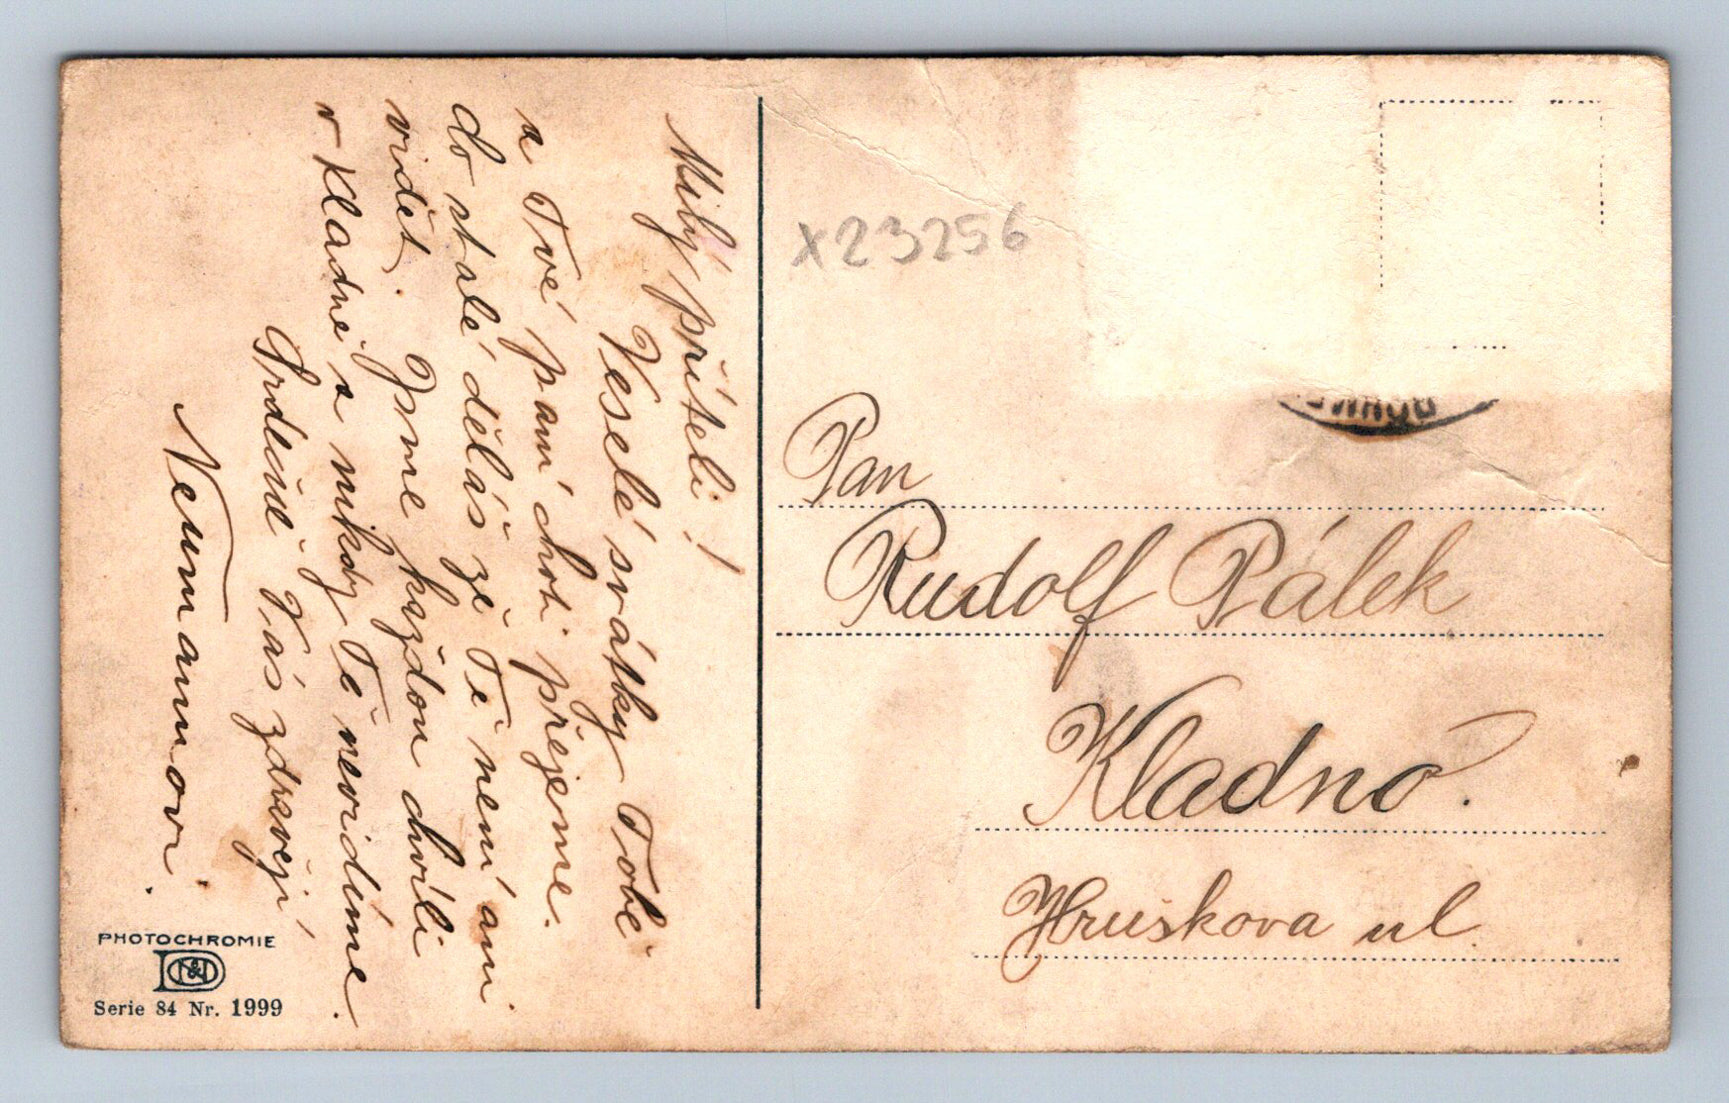 Milý příteli!
Veselé svátky Tobě
a Tvé paní choti přejeme.
Co stále děláš že Tě není ani
vidět. Jsme každou chvíli
v Kladně a nikdy Tě nevidíme.
Srdečně Vás zdravějí
Neumannovi.
PHOTOCHROMIE
Serie 84 Nr. 1999
X23256
Pan
Rudolf Pálek
Kladno.
Hruškova ul.